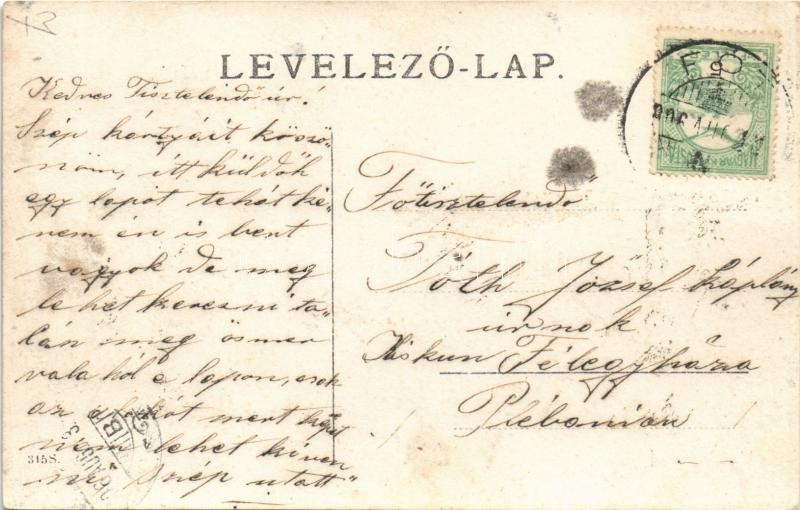 LEVELEZŐ-LAP.
Kedves Tisztelendő úr!
Szép kártyáit köszö-
nöm, itt küldök
egy lapot tehát ké-
nem én is bent
vagyok de meg
lehet keresni ta-
lán meg ösmer
vala hól a lapon, csak
az mert
nem lehet kiven
ni szép utatt
Főtisztelendő
Tóth József káplány
úrnak
Kiskun Félegyháza
Plébánián
315S.